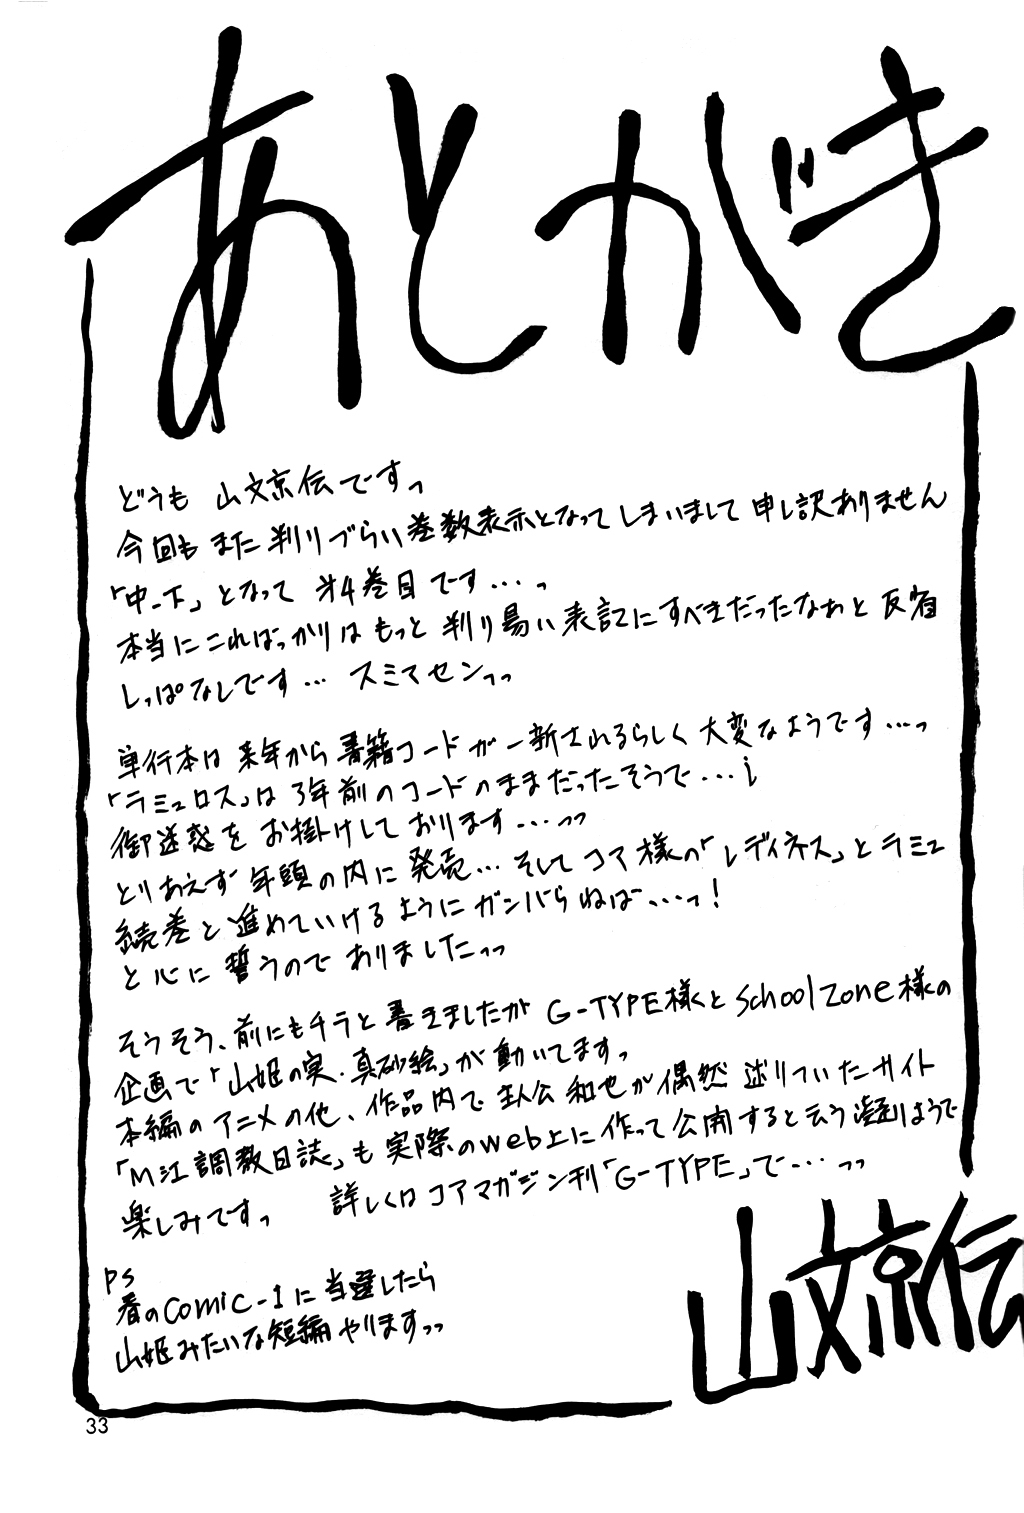 あとがき
どうも 山文京伝ですっ
今回も また 判りづらい巻数表示となってしまいまして 申し訳ありません
「中-下」となって 第4巻目です…っ
本当にこればっかりは もっと 判り易い表記にすべきだったなぁと 反省
しっぱなしです… スミマセンっっ
単行本は 来年から書籍コードが一新されるらしく 大変なようです…っ
「ラミュロス」は 3年前のコードのままだったそうで…;
御迷惑を お掛けしております…っっ
とりあえず 年頭の内に発売… そして コア様の「レディネス」と ラミュ
続巻と 進めていけるようにガンバらねば…っ!
と心に 誓うのでありましたっっ
そうそう、前にもチラと書きましたが G-TYPE様とschoolzone様の
企画で「山姫の実・真砂絵」が動いてます。
本編のアニメの他、作品内で 主人公 和也が偶然 辿りついたサイト
「M江調教日誌」も 実際のweb上に 作って公開すると云う凝りようで
楽しみです。 詳しくは コアマガジン刊「G-TYPE」で…っっ
PS
春のcomic-1に当選したら
山姫みたいな短編やりますっっ
山文京伝
33